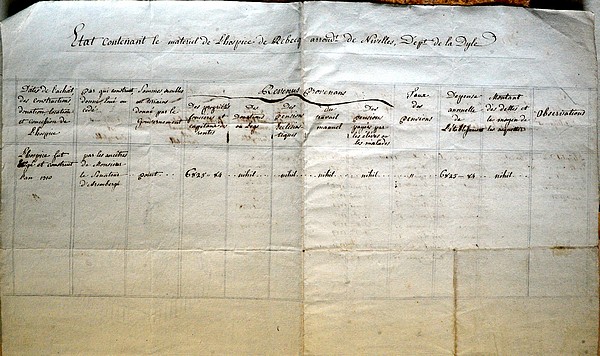 Etat contenant le materiel de l'hospice de Rebecq arrondt de Nivelles, Dept de la Dyle
Dates de l'achat des constructions donation, location et concession de l'hospice
par qui construit donné, loué ou cédé
Sommes meubles et terrains donnés par le gouvernement
Revenus Provenans
Des propriétés foncieres et capitaux de rentes
Des Donations ou Legs
Des pensions
Du travail manuel
Des pensions payées par les élèves ou les malades
Taux des pensions
Depense annuelle de l'établissement
Montant des dettes et les moyen de les acquitter
Observations
l'hospice fut erigé et construit l'an 1310
par les ancêtres de Monsieur le Senateur d'Aremberg
point
6825-84
nihil
nihil
nihil
nihil
"
6825-84
nihil